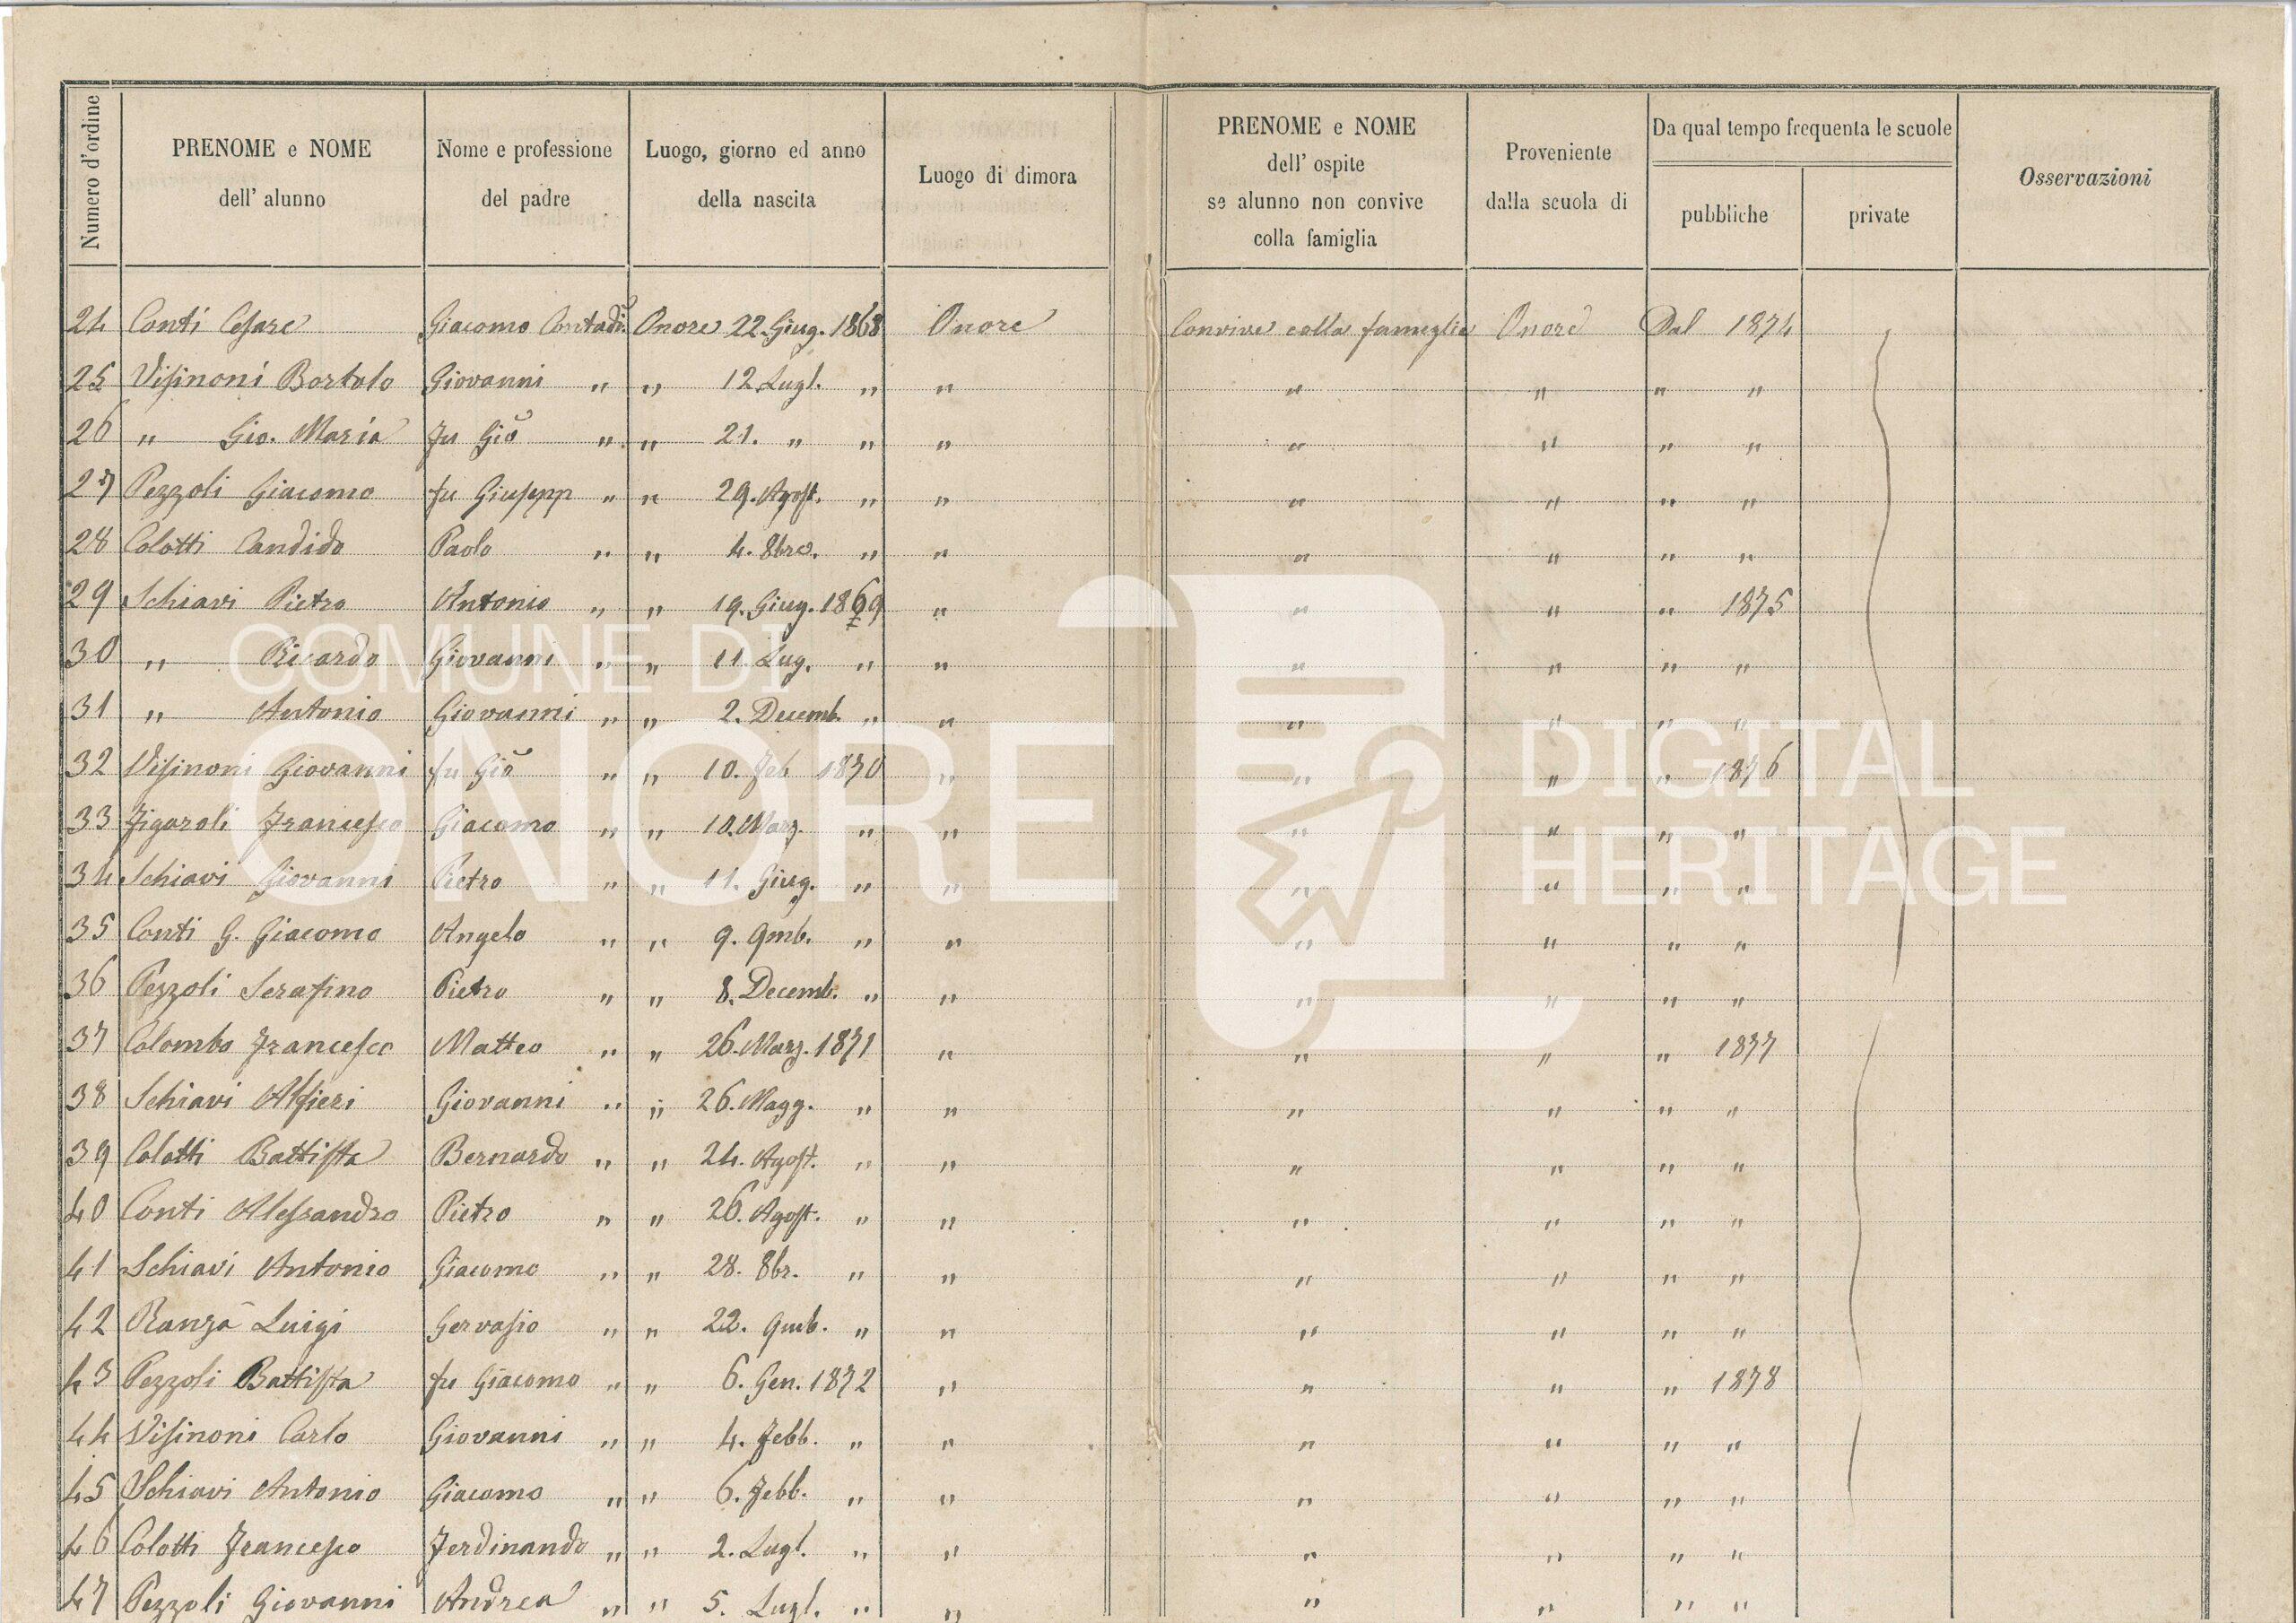 Numero d'ordine
PRENOME e NOME
dell' alunno
Nome e professione
del padre
Luogo, giorno ed anno
della nascita
Luogo di dimora
PRENOME e NOME
dell' ospite
se alunno non convive
colla famiglia
Proveniente
dalla scuola di
Da qual tempo frequenta le scuole
pubbliche
private
Osservazioni
24 Conti Cesare Giacomo Contadi. Onore 22. Giug. 1868 Onore Convive colla famiglia Onore Dal 1874
25 Visinoni Bortolo Giovanni " " 12 Lugl. " " " " " "
26 " Gio. Maria fu Gio " " 21. " " " " " " "
27 Pezzoli Giacomo fu Giusepp " " 29. Agost. " " " " " "
28 Colotti Candido Paolo " " 4. 8bre. " " " " " "
29 Schiavi Pietro Antonio " " 19. Giug. 1869 " " " " 1875
30 " Ricardo Giovanni " " 11 Lug. " " " " " "
31 " Antonio Giovanni " " 2. Decemb. " " " " " "
32 Visinoni Giovanni fu Gio " " 10. Feb 1870 " " " " 1876
33 Figaroli Francesco Giacomo " " 10. Marz. " " " " " "
34 Schiavi Giovanni Pietro " " 11. Giug. " " " " " "
35 Conti G. Giacomo Angelo " " 9. 9mb. " " " " " "
36 Pezzoli Serafino Pietro " " 8. Decemb. " " " " " "
37 Colombo Francesco Matteo " " 26. Marz. 1871 " " " " 1877
38 Schiavi Alfieri Giovanni " " 26. Magg. " " " " " "
39 Colotti Battista Bernardo " " 24. Agost. " " " " " "
40 Conti Alessandro Pietro " " 26. Agost. " " " " " "
41 Schiavi Antonio Giacomo " " 28. 8br. " " " " " "
42 Ranza Luigi Gervasio " " 22. 9mb. " " " " " "
43 Pezzoli Battista fu Giacomo " " 6. Gen. 1872 " " " " 1878
44 Visinoni Carlo Giovanni " " 4. Febb. " " " " " "
45 Schiavi Antonio Giacomo " " 6. Febb. " " " " " "
46 Colotti Francesco Ferdinando " " 2. Lugl. " " " " " "
47 Pezzoli Giovanni Andrea " " 5. Lugl. " " " " " "
COMUNE DI
ONORE
DIGITAL
HERITAGE